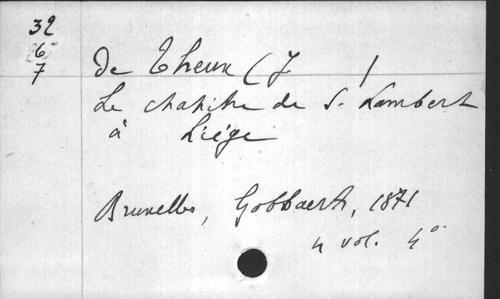 32
6
7
de Theux (J )
Le chapitre de S. Lambert
à Liége
Bruxelles, Gobbaerts, 1871
4 vol. 4°